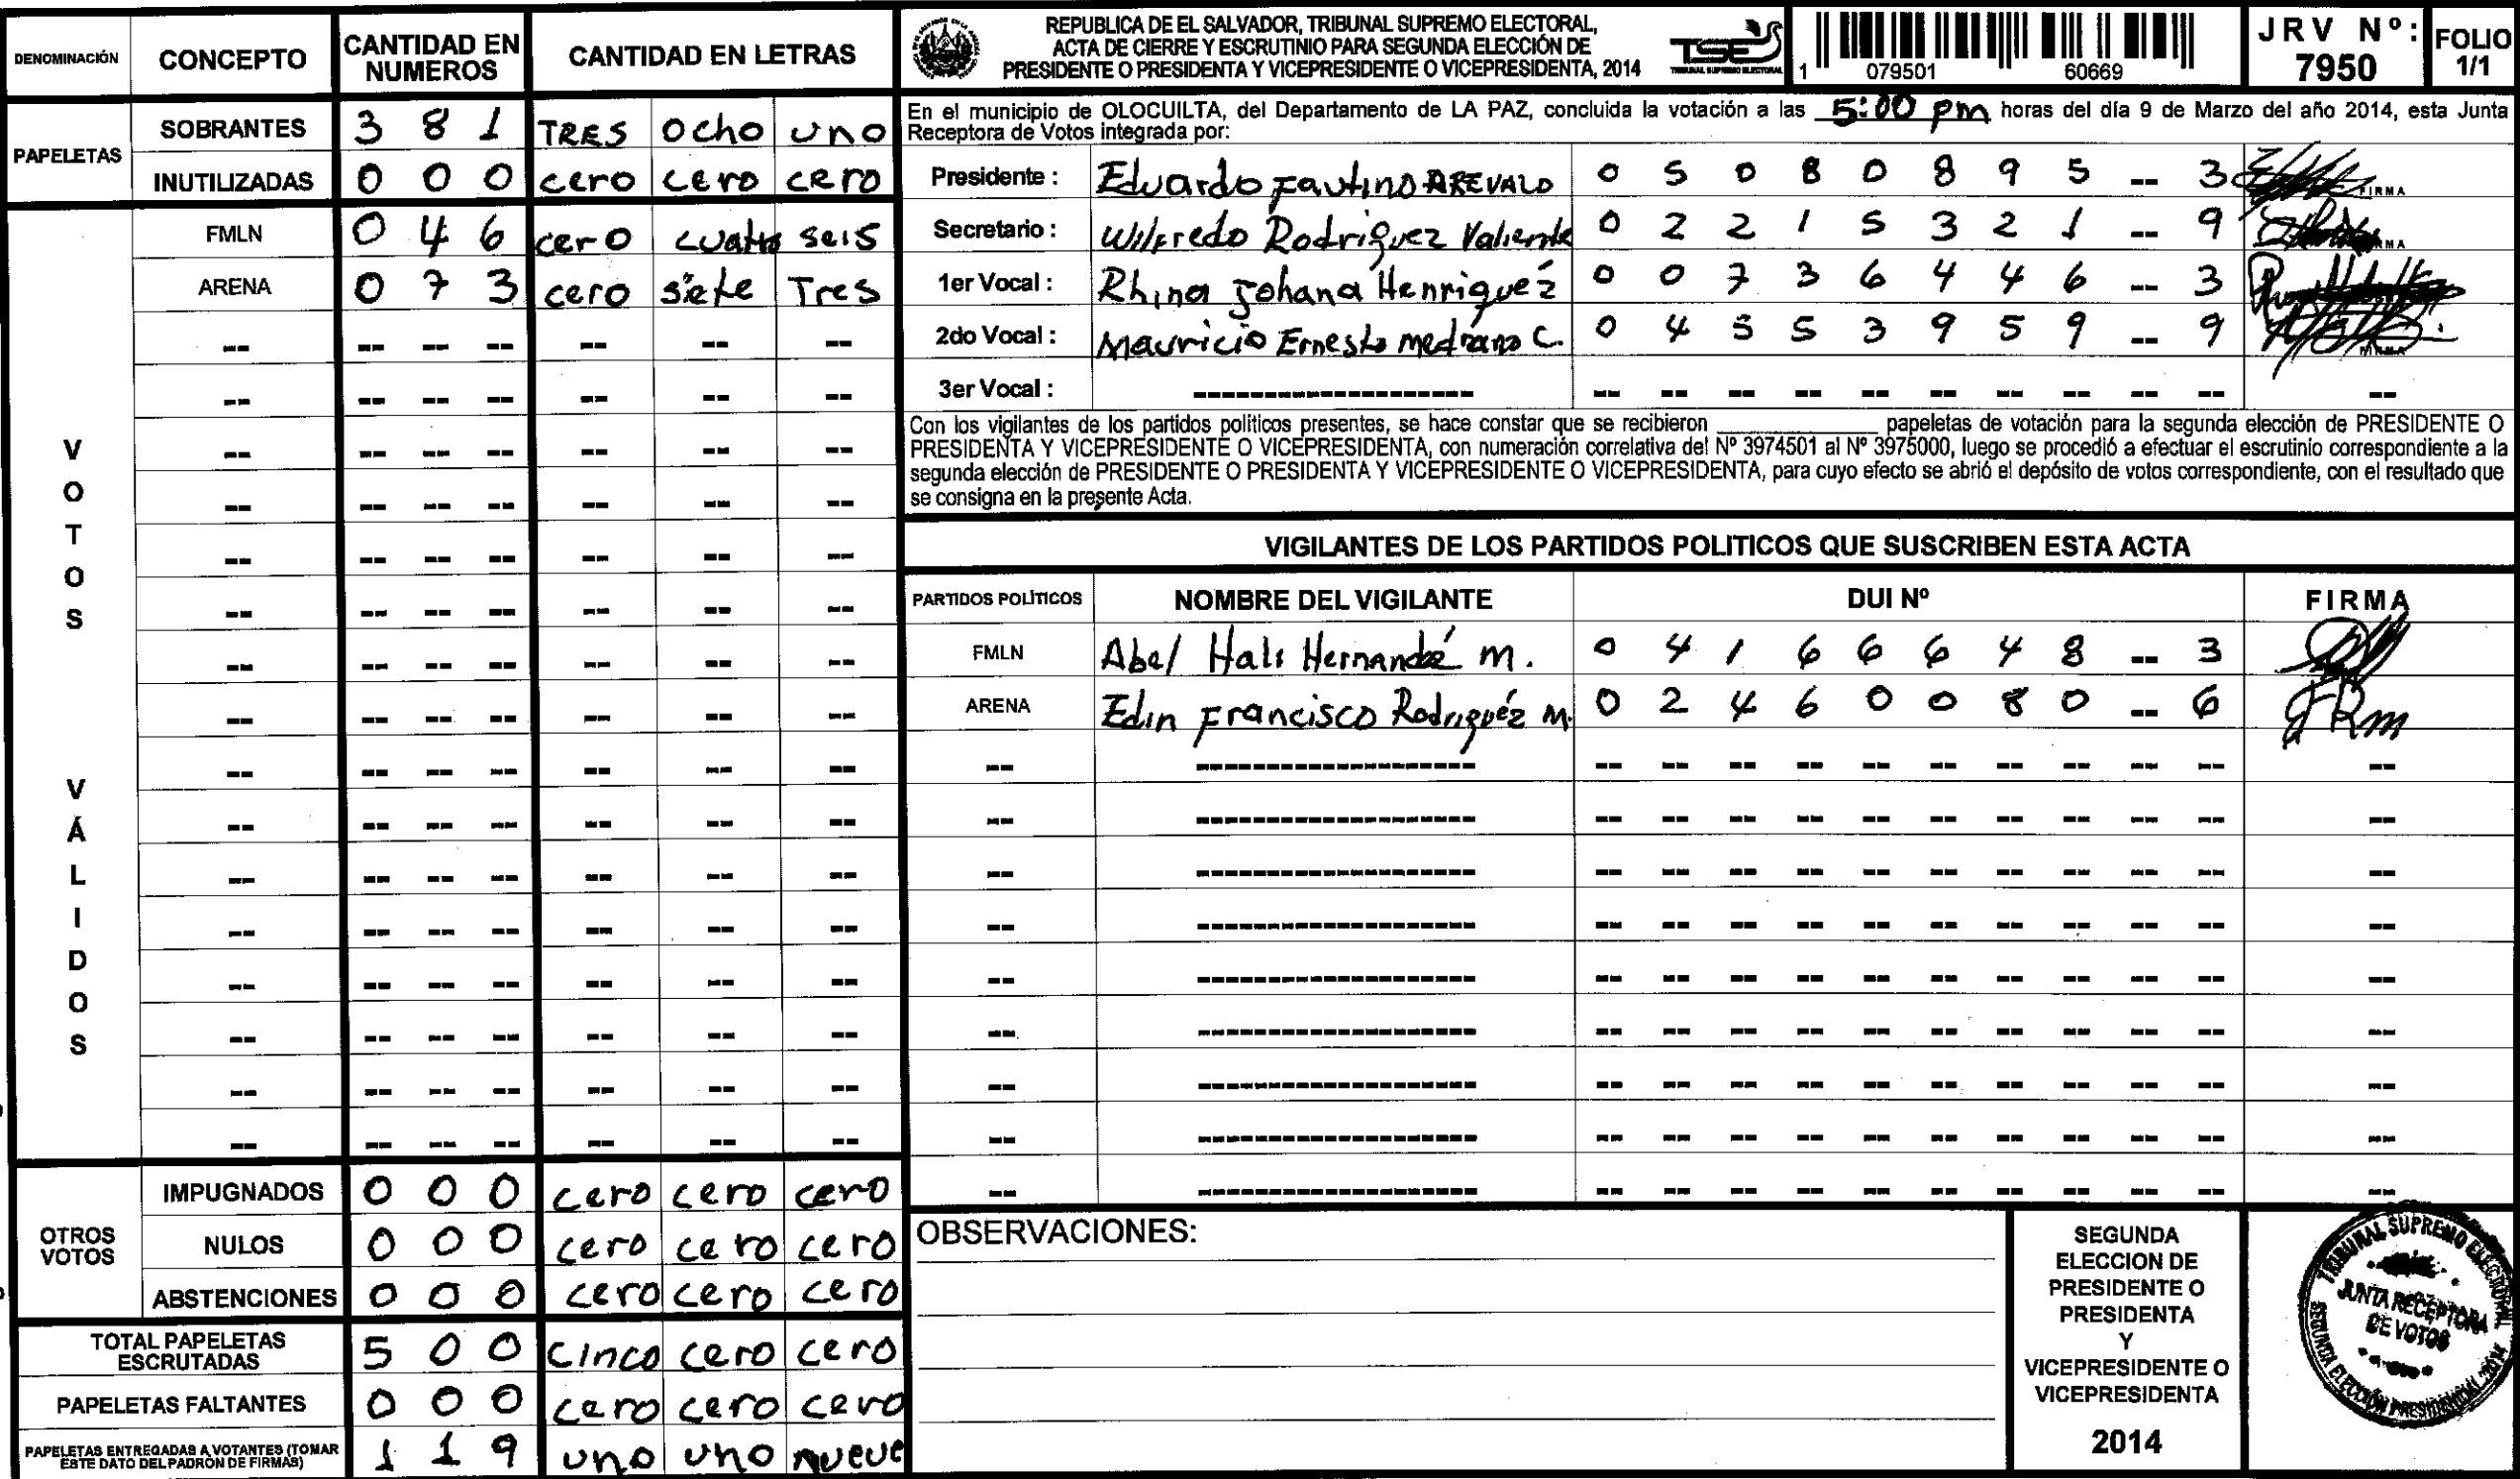 DENOMINACIÓN CONCEPTO CANTIDAD EN NUMEROS CANTIDAD EN LETRAS
PAPELETAS
SOBRANTES 3 8 1 TRES Ocho uno
INUTILIZADAS 0 0 0 cero cero cero
VOTOS VÁLIDOS
FMLN 0 4 6 cero cuatro seis
ARENA 0 7 3 cero siete Tres
OTROS VOTOS
IMPUGNADOS 0 0 0 cero cero cero
NULOS 0 0 0 cero cero cero
ABSTENCIONES 0 0 0 cero cero cero
TOTAL PAPELETAS ESCRUTADAS 5 0 0 cinco cero cero
PAPELETAS FALTANTES 0 0 0 cero cero cero
PAPELETAS ENTREGADAS A VOTANTES (TOMAR ESTE DATO DEL PADRÓN DE FIRMAS) 1 1 9 uno uno nueve
REPUBLICA DE EL SALVADOR, TRIBUNAL SUPREMO ELECTORAL,
ACTA DE CIERRE Y ESCRUTINIO PARA SEGUNDA ELECCIÓN DE
PRESIDENTE O PRESIDENTA Y VICEPRESIDENTE O VICEPRESIDENTA, 2014
TSE
TRIBUNAL SUPREMO ELECTORAL
1 079501 60669
JRV Nº: 7950
FOLIO 1/1
En el municipio de OLOCUILTA, del Departamento de LA PAZ, concluida la votación a las 5:00 pm horas del día 9 de Marzo del año 2014, esta Junta
Receptora de Votos integrada por:
Presidente : Eduardo Fautino AREVALO 0 5 0 8 0 8 9 5 -- 3 FIRMA
Secretario : Wilfredo Rodriguez Valiente 0 2 2 1 5 3 2 1 -- 9
1er Vocal : Rhina Johana Henriquez 0 0 7 3 6 4 4 6 -- 3
2do Vocal : Mauricio Ernesto medrano C. 0 4 5 5 3 9 5 9 -- 9 FIRMA
3er Vocal :
Con los vigilantes de los partidos políticos presentes, se hace constar que se recibieron ____ papeletas de votación para la segunda elección de PRESIDENTE O
PRESIDENTA Y VICEPRESIDENTE O VICEPRESIDENTA, con numeración correlativa del Nº 3974501 al Nº 3975000, luego se procedió a efectuar el escrutinio correspondiente a la
segunda elección de PRESIDENTE O PRESIDENTA Y VICEPRESIDENTE O VICEPRESIDENTA, para cuyo efecto se abrió el depósito de votos correspondiente, con el resultado que
se consigna en la presente Acta.
VIGILANTES DE LOS PARTIDOS POLITICOS QUE SUSCRIBEN ESTA ACTA
PARTIDOS POLÍTICOS NOMBRE DEL VIGILANTE DUI Nº FIRMA
FMLN Abel Hernandez M. 0 4 1 6 6 6 4 8 -- 3
ARENA Edin Francisco Rodriguéz M. 0 2 4 6 0 0 8 0 -- 6
OBSERVACIONES:
SEGUNDA
ELECCION DE
PRESIDENTE O
PRESIDENTA
Y
VICEPRESIDENTE O
VICEPRESIDENTA
2014
TRIBUNAL SUPREMO ELECTORAL
JUNTA RECEPTORA
DE VOTOS
SEGUNDA ELECCIÓN PRESIDENCIAL 2014